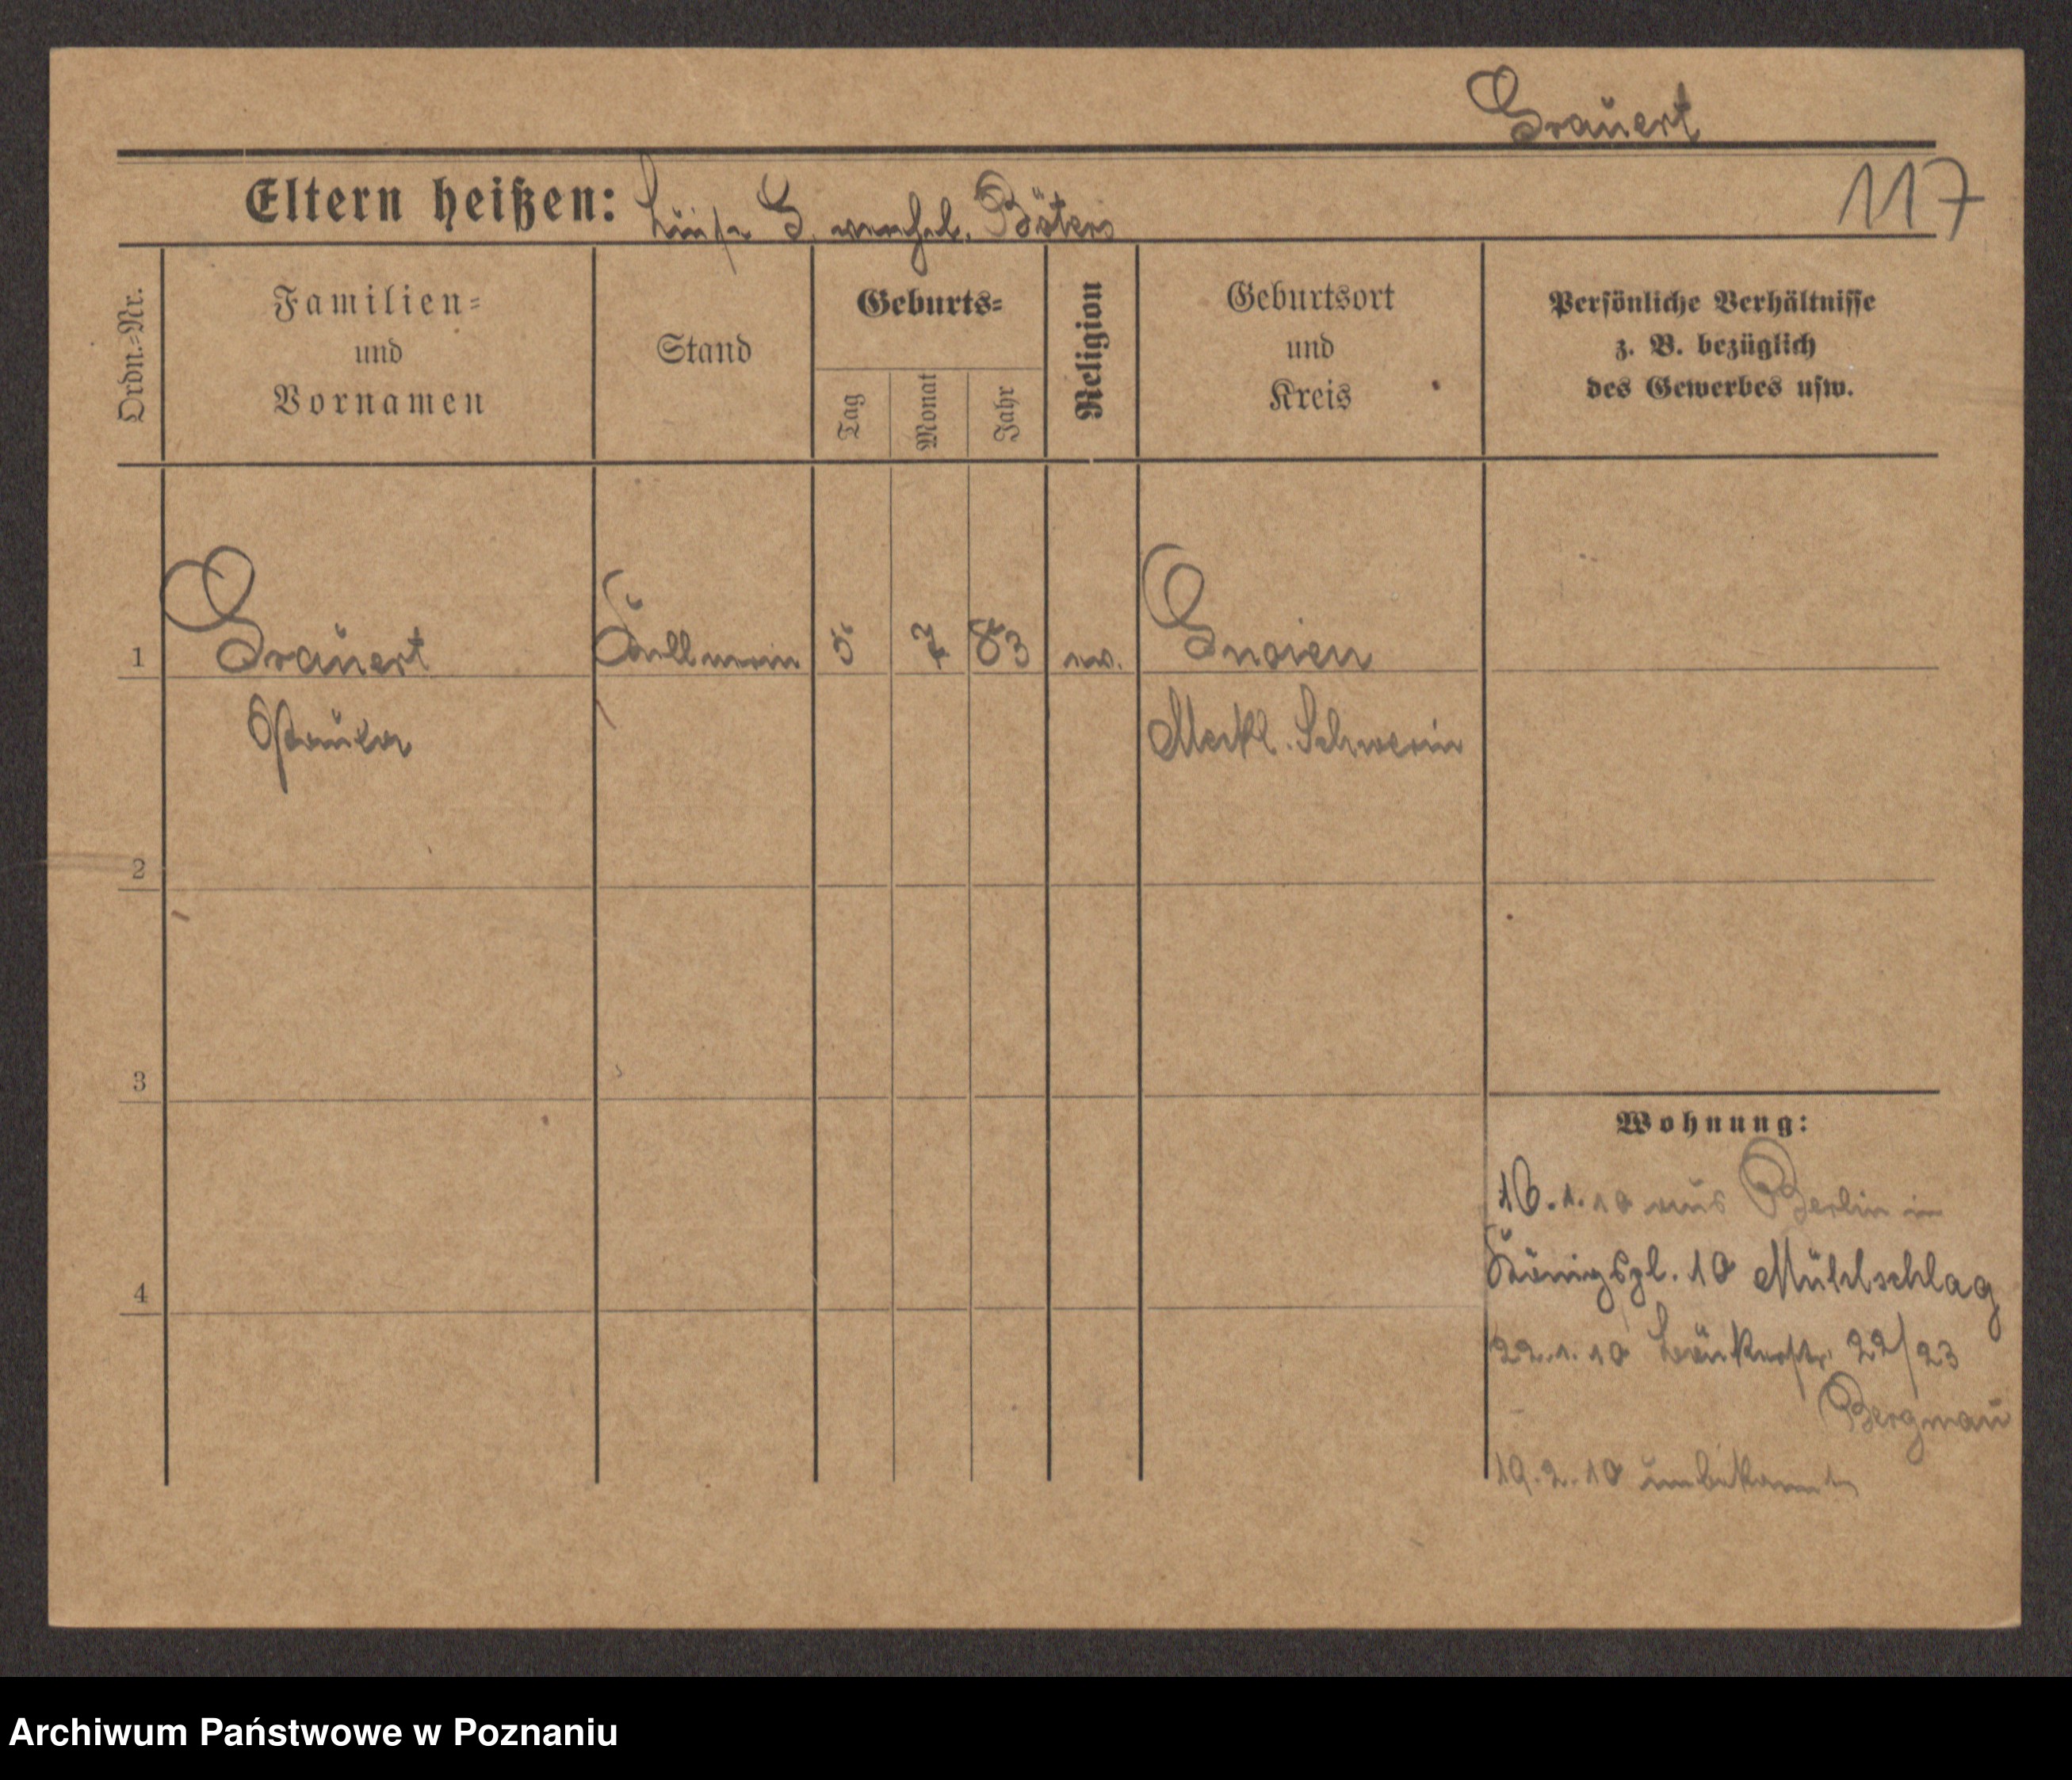 Grauert
117
Eltern heißen: Luise G. verehel. Böters
Ordn.-Nr.
Familien-
und
Vornamen
Stand
Geburts-
Tag
Monat
Jahr
Religion
Geburtsort
und
Kreis
Persönliche Verhältnisse
z. B. bezüglich
des Gewerbes usw.
1 Grauert Kellnerin 5 7 83 ev. Gnoien
Paula Meckl. Schwerin
2
3
Wohnung:
16.1.10 aus Berlin in
Königspl. 10 Mühlschlag
4
22.1.10 22/23
Bergmann
19.2.10 unbekannt
Archiwum Państwowe w Poznaniu